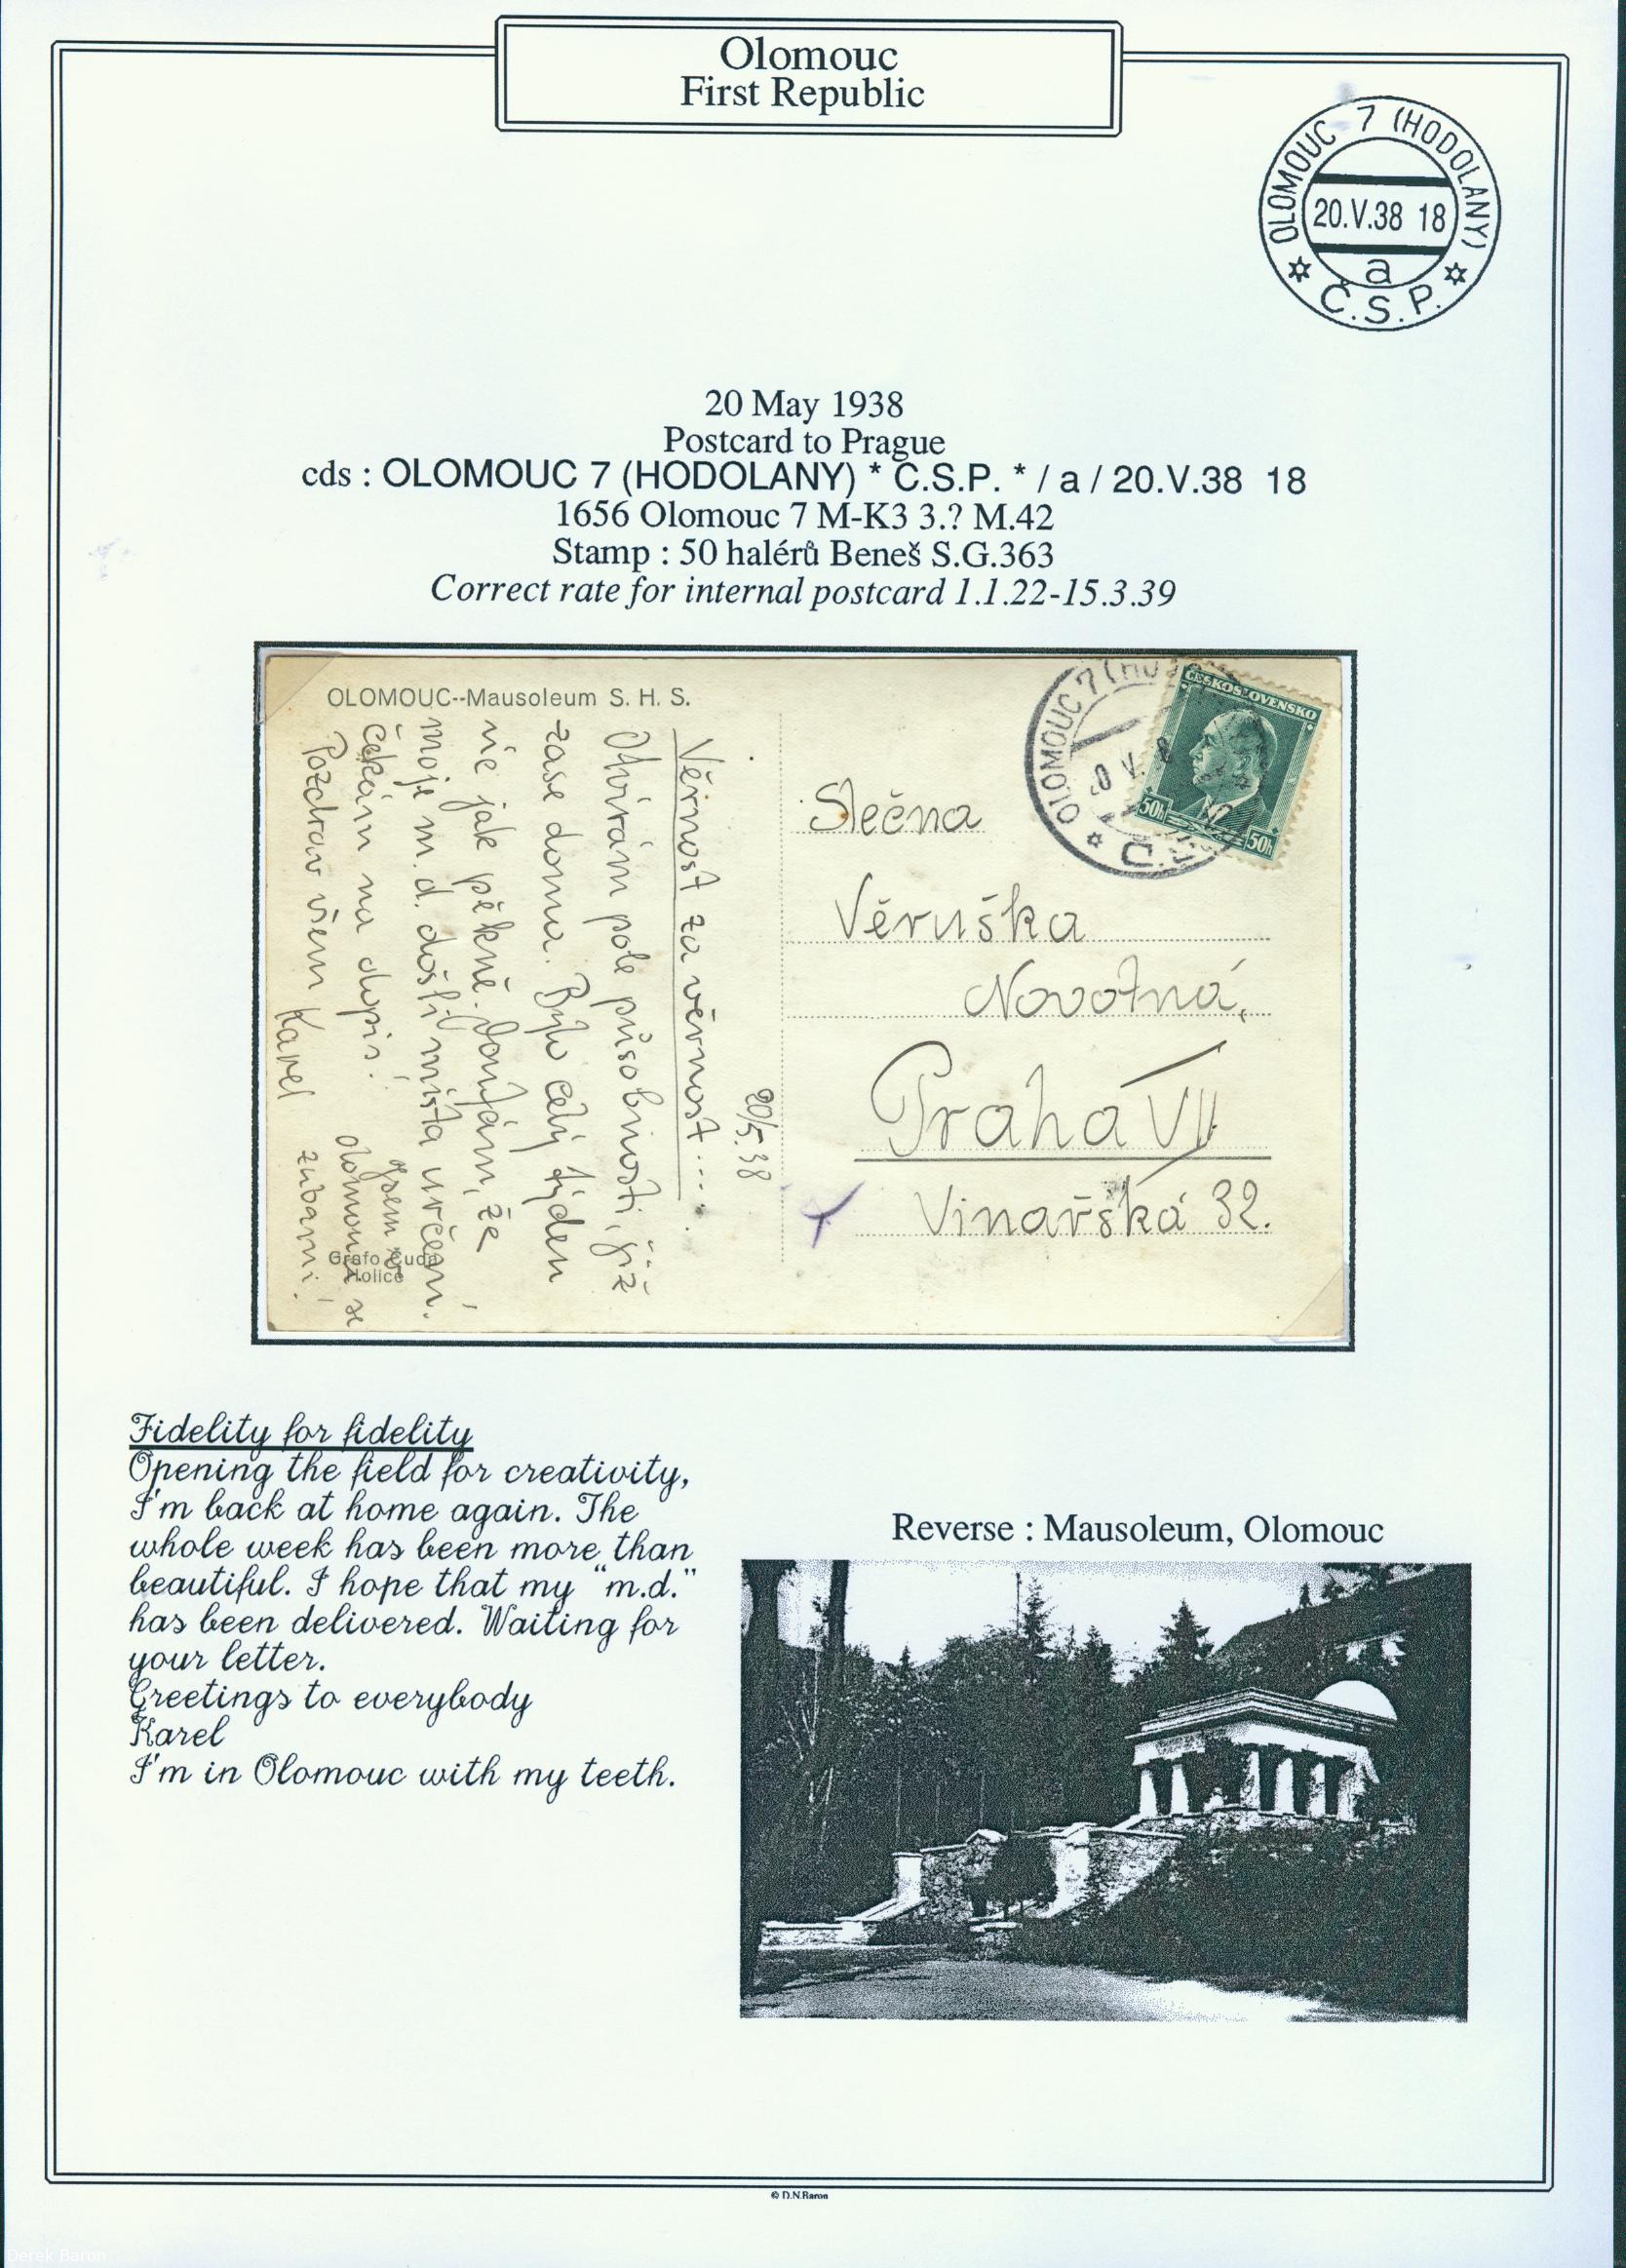 Olomouc
First Republic
OLOMOUC 7 (HODOLANY)
20.V.38 18
a
* Č.S.P. *
20 May 1938
Postcard to Prague
cds : OLOMOUC 7 (HODOLANY) * Č.S.P. * / a / 20.V.38 18
1656 Olomouc 7 M-K3 3.? M.42
Stamp : 50 halérů Beneš S.G.363
Correct rate for internal postcard 1.1.22-15.3.39
OLOMOUC--Mausoleum S. H. S.
20/5.38
Věrnost za věrnost....
Otvírám pole působnosti, již
zase doma. Bylo celý týden
víc jak pěkně. Doufám, že
moje m. d. došli místa určení.
Čekám na dopis!
Pozdrav všem Karel
Jsem v
Olomouci se
zubami.
Grafo Čuda
Holice
OLOMOUC 7 (HO
ČESKOSLOVENSKO
50h 50h
Slečna
Věruška
Novotná,
Praha VII
Vinařská 32.
Fidelity for fidelity
Opening the field for creativity,
I'm back at home again. The
whole week has been more than
beautiful. I hope that my "m.d."
has been delivered. Waiting for
your letter.
Greetings to everybody
Karel
I'm in Olomouc with my teeth.
Reverse : Mausoleum, Olomouc
© D.N.Baron
Derek Baron